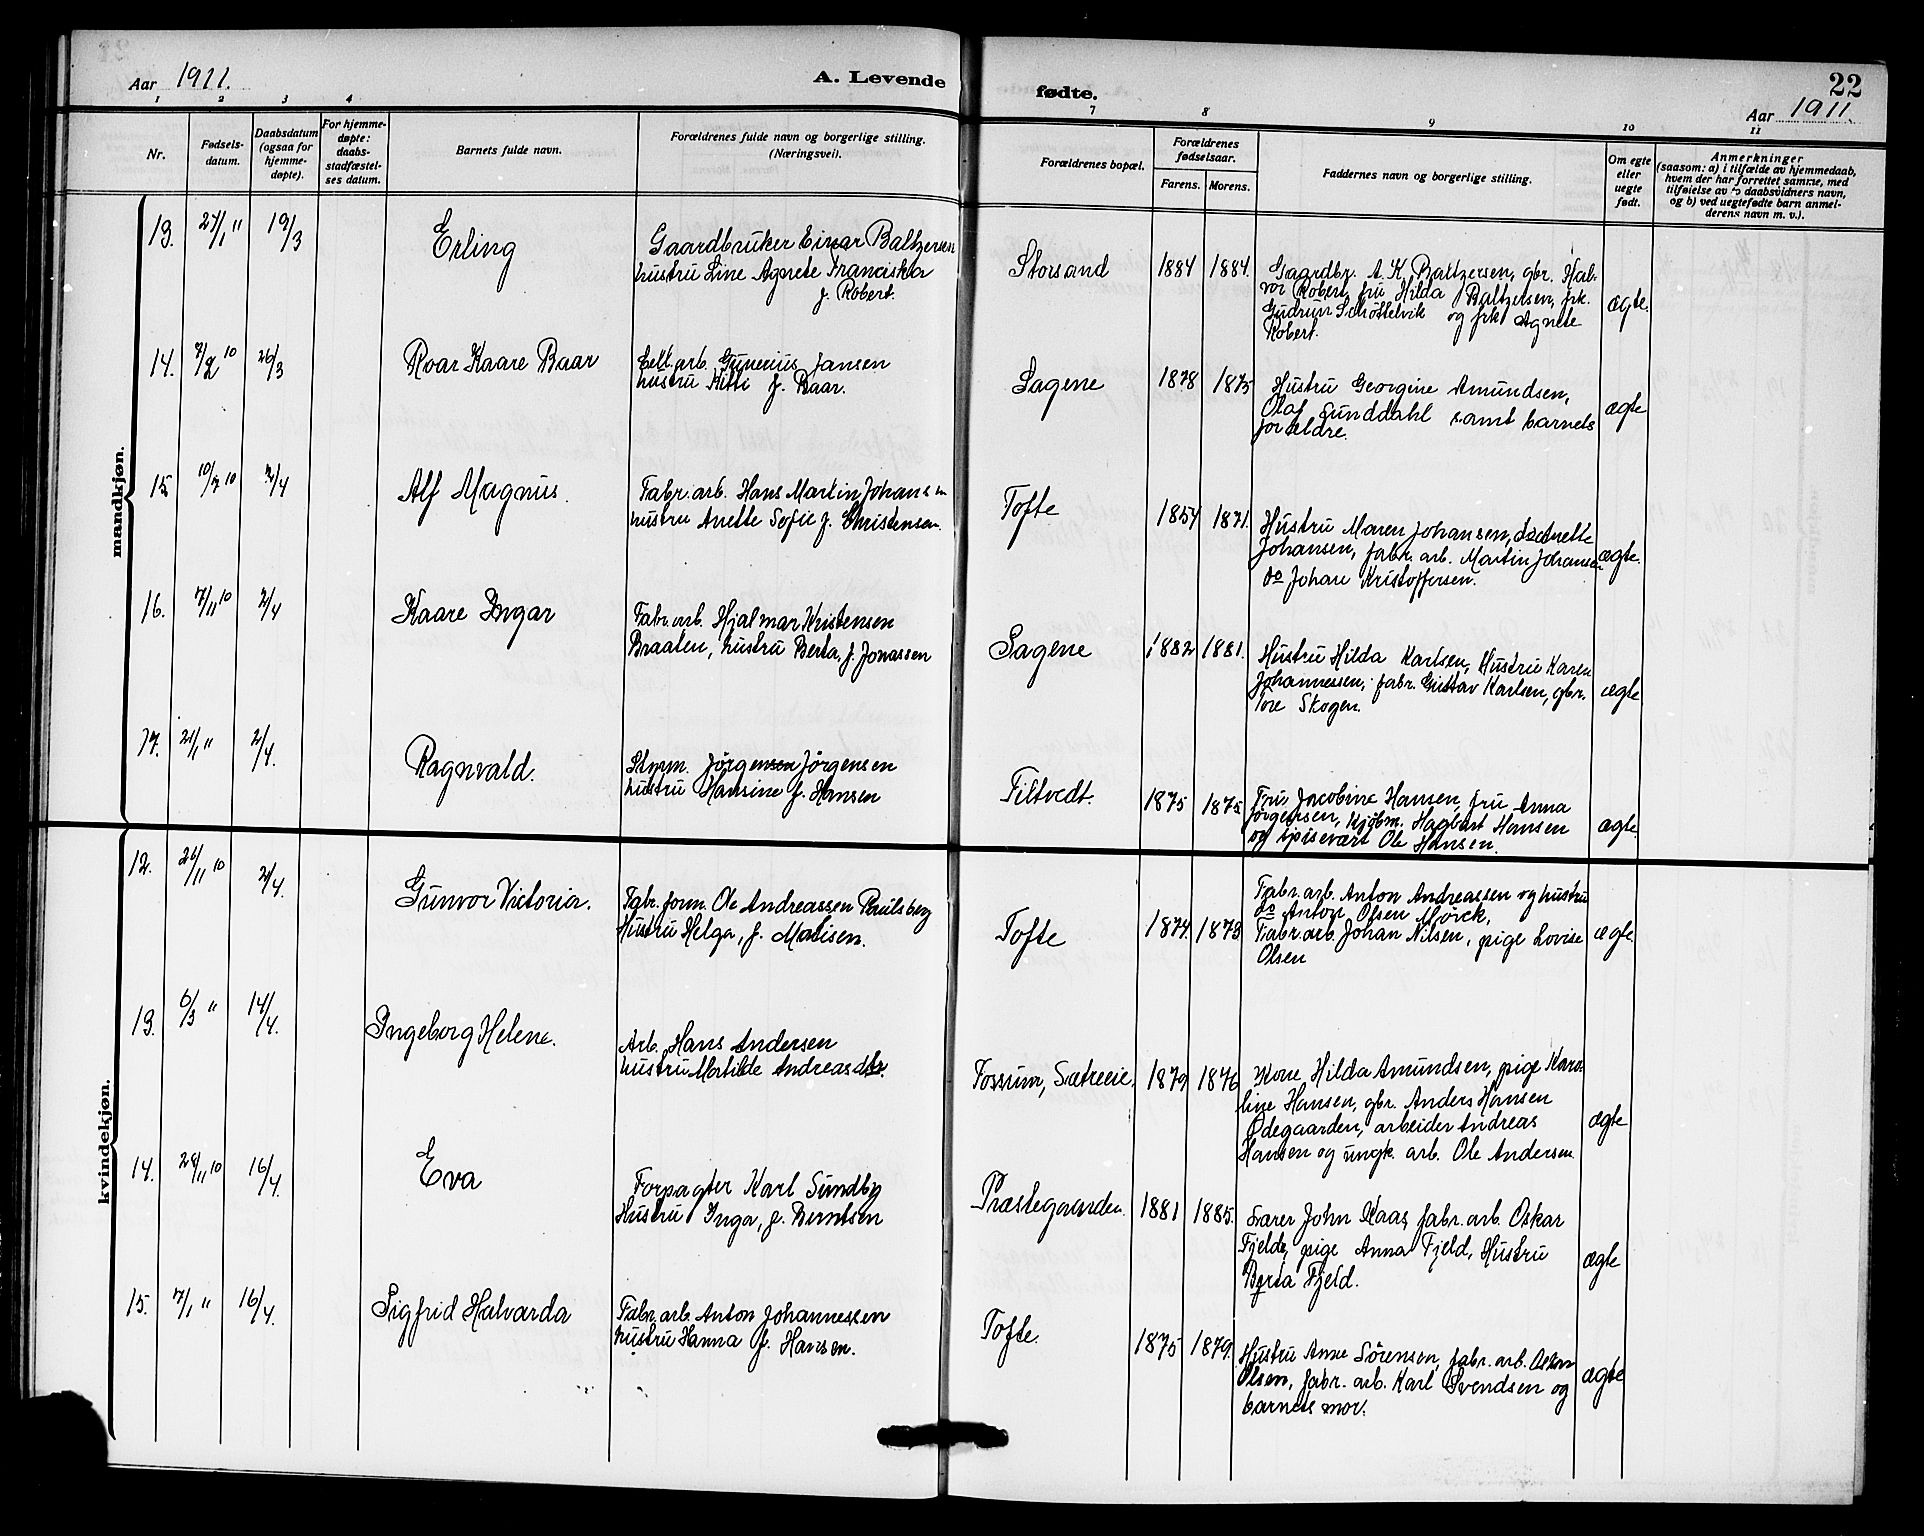 Aar 1911.
A. Levende
fødte.
22
Aar 1911.
1 2 3 4
7 8 9 10 11
Nr.
Fødsels-
datum.
Daabsdatum
(ogsaa for
hjemme-
døpte).
For hjemme-
døpte:
daabs-
stadfæstel-
ses datum.
Barnets fulde navn.
Forældrenes fulde navn og borgerlige stilling.
(Næringsvei).
Forældrenes bopæl.
Forældrenes
fødselsaar.
Farens. Morens.
Faddernes navn og borgerlige stilling.
Om egte
eller
uegte
født.
Anmerkninger
(saasom: a) i tilfælde av hjemmedaab,
hvem der har forrettet samme, med
tilføielse av to daabsvidners navn,
og b) ved uegtefødte barn anmel-
derens navn m. v.).
mandkjøn.
13. 27/1 " 19/3
Erling
Gaardbruker Einar Baltzersen
hustru Line Agnete Franciska
f. Robert.
Storsand
1884 1884.
Gaardbr. A. K. Baltzersen, gbr. Hal-
vor Robert, fru Hilda Baltzersen, frk.
Gudrun Schøttelvik og frk Agnete
Robert.
ægte.
14. 7/2 10 26/3
Roar Kaare Baar
Cell.arb. Gunerius Jansen
hustru Kitti f. Baar.
Sagene
1878 1875
Hustru Georgine Amundsen,
Olaf Sunddahl samt barnets
forældre.
ægte
15 10/7 10 2/4
Alf Magnus.
Fabr. arb. Hans Martin Johansen
hustru Anette Sofie f. Christensen.
Tofte
1854 1871.
Hustru Maren Johansen, do Anette
Johansen, fabr. arb. Martin Johansen
do Johan Kristoffersen.
ægte.
16. 7/11 10 2/4
Kaare Ingar
Fabr. arb. Hjalmar Kristensen
Braaten, hustru Berta, f. Jonassen
Sagene
1882 1881.
Hustru Hilda Karlsen, Hustru Karen
Johannessen, fabr. Gustav Karlsen, gbr.
Tore Skogen.
ægte
17. 21/1 " 2/4.
Ragnvald.
Stymm. Jørgensen Jørgensen
hustru Hansine f. Hansen
Filtvedt.
1875 1875
Fru Jacobine Hansen, fru Anna
Jørgensen, kjøbm. Hagbart Hansen
og spisevært Ole Hansen.
ægte
kvindekjøn.
12. 26/11 10 2/4.
Gunvor Victoria.
Fabr. form. Ole Andreassen Paulsberg
Hustru Helga, f. Matisen.
Tofte
1874. 1873
Fabr. arb. Anton Andreassen og hustru
do Anton Olsen Mørck,
Fabr. arb. Johan Nilsen, pige Lovise
Olsen
ægte
13. 6/3 " 14/4.
Ingeborg Helene.
Arb. Hans Andersen
hustru Martilde Andreasdtr.
Fossum, Sætreeie
1879 1876
Kone Hilda Amundsen, pige Karo-
line Hansen, gbr. Anders Hansen
Ødegaarden, arbeider Andreas
Hansen og ungk. arb. Ole Andersen.
ægte
14. 28/11 10 16/4.
Eva
Forpagter Karl Sundby
Hustru Inga, f. Berntsen
Præstegaarden.
1881 1885.
Lærer John Kaas, fabr. arb. Oskar
Fjeld, pige Anna Fjeld, Hustru
Berta Fjeld.
ægte
15. 7/1 " 16/4.
Sigfrid Halvarda
Fabr. arb. Anton Johannessen
hustru Hanna f. Hansen.
Tofte.
1875 1879.
Hustru Anne Sørensen, fabr. arb. Oskar
Olsen, fabr. arb. Karl Svendsen og
barnets mor.
ægte